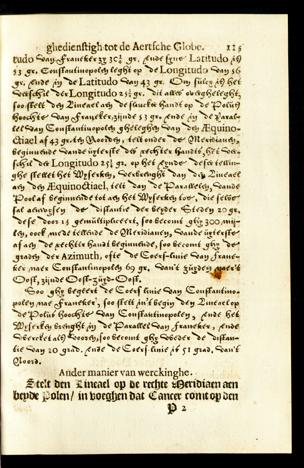 ghedienstigh tot de Aertsche Globe. 115
tudo van Franeker 27 3/4 gr. ende syne Latitudo is
53 gr. Constantinopolen leght op de Longitudo van 56
gr. ende in de Latitudo van 43 gr. Om sulcx is het
verschil der Longitudo gr. dit alles overgheleght,
soo stelt den Lineael aen de slincke handt op de Polus
hooghte van Franeker zijnde 53 gr. ende in de Paral-
lel van Constantinopolen gheleghen van den Æquino-
ctiael af 43 gr. na Noorden, telt onder de Meridianen,
beginnende van de uyterste de rechter handt, het ver-
schil der Longitudo gr. op het eynde deser tellin-
ghe stellet het Wyserken, verbrenght dan den Lineael
aen den Æquinoctiael, telt de Parallelen, van de
Pool af beginnende tot aen het Wyserken toe, die selve
sal aenwysen de distantie der beyder Steden 20 gr.
dese door 15 gemultipliceert, soo becomt ghy 300 mij-
len, oock mede tellende de Meridianen, van de uyterste
af aen de rechter handt beginnende, soo becomt ghy de
graden der Azimuth, ofte de Coers-linie van Frane-
ker naer Constantinopolen 69 gr. van't zuyden naer't
Oost, zijnde Oost-Zuyd-Oost.
Soo ghy begeert de Coers-linie van Constantino-
polen nae Franeker, soo stelt in't begin den Lineael op
de Polus hooghte van Constantinopolen, ende het
Wyserken brenght in de Parallel van Franeker, ende
werckt als vooren, soo becomt ghy weder de distan-
tie van 20 grad. ende de Coers-linie is 51 grad. van't
Noord.
Ander manier van werckinghe.
Stelt den Lineael op de rechte Meridiaen aen
beyde Polen/ in voeghen dat Cancer comt op den
P 2